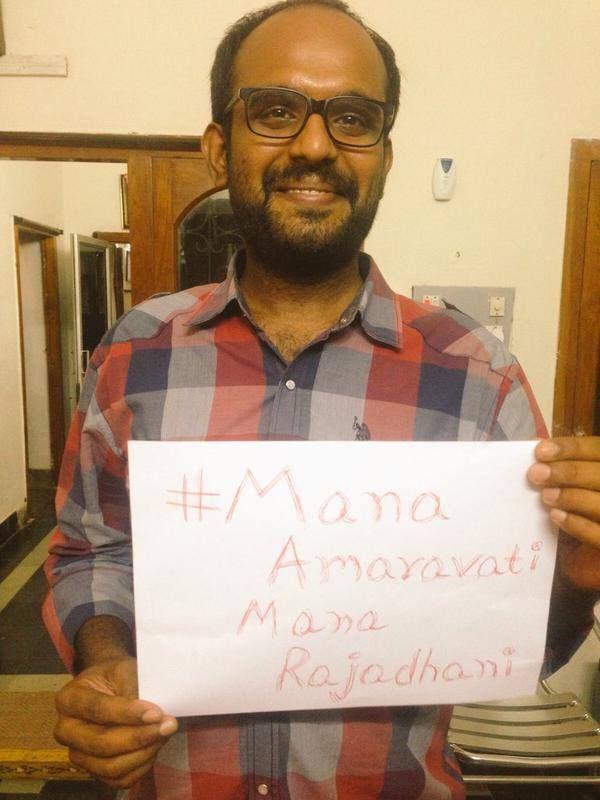 #Mana
Amaravati
Mana
Rajadhani